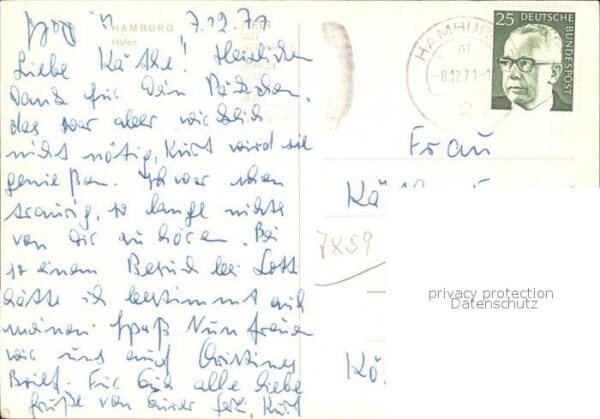 HAMBURG
Hafen
7.12.71
Liebe Käthe! Herzlichen
Dank für Dein Päckchen,
das war aber wirklich
nicht nötig, Kurt wird sie
genießen. Ich war schon
traurig, so lange nichts
von Dir zu hören. Bei
so einem Besuch bei Lott
hätte ich bestimmt auch
meinen Spaß. Nun freuen
wir uns auf Christines
Brief. Für Euch alle liebe
Grüße von Eurer Kurt
HAMBURG
-8.12.71-1
2
25 DEUTSCHE
BUNDESPOST
Frau
Kä
7859
Kö
privacy protection
Datenschutz